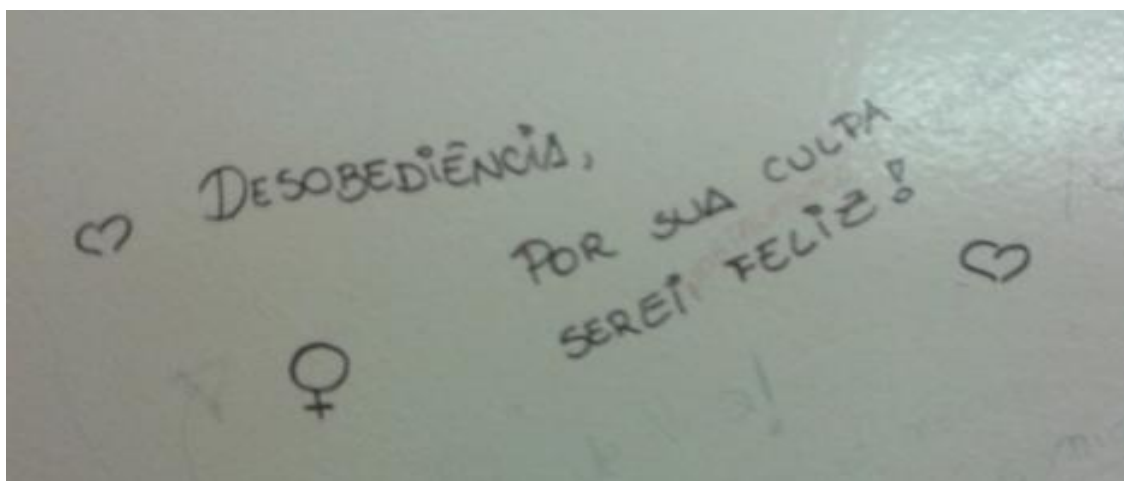 DESOBEDIÊNCIA,
POR SUA CULPA
SEREI FELIZ!